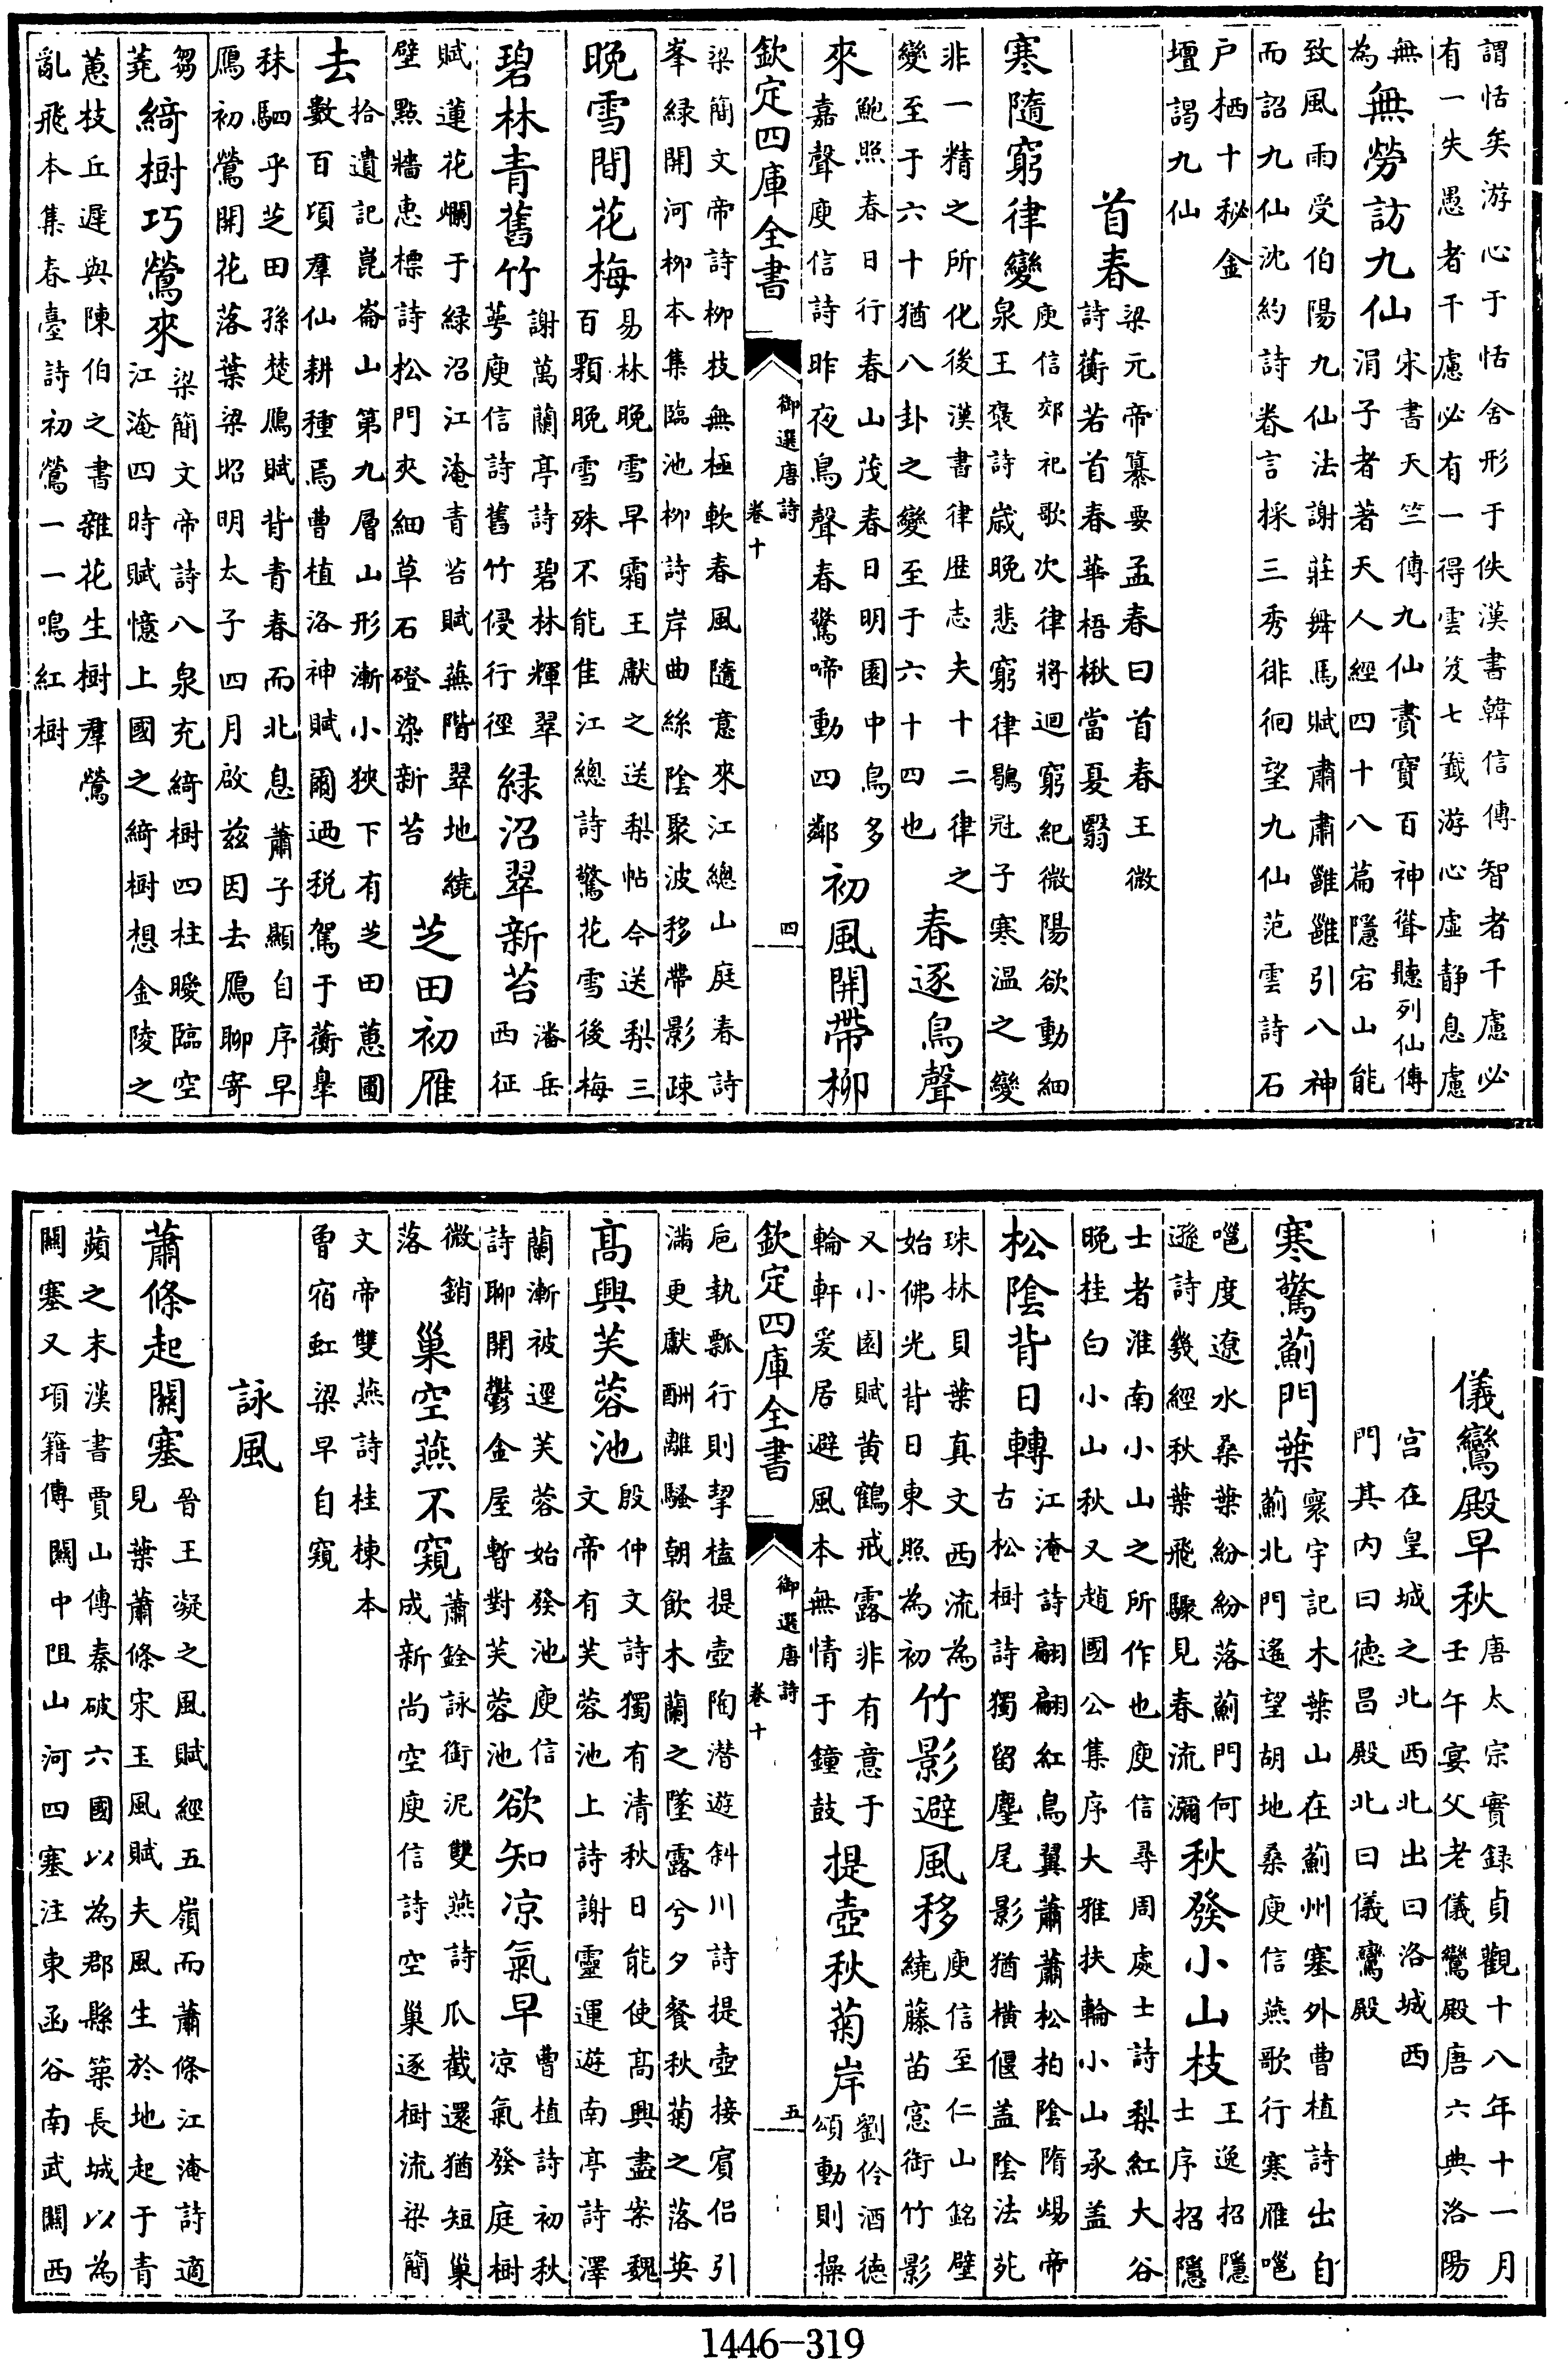 謂恬矣游心于恬舍形于佚漢書韓信傳智者千慮必
有一失愚者千慮必有一得雲笈七籤游心虛靜息慮
無
為
無勞訪九仙
宋書天竺傳九仙賮寶百神聳聽列仙傳
涓子者著天人經四十八篇隱宕山能
致風雨受伯陽九仙法謝莊舞馬賦肅肅雝雝引八神
而詔九仙沈約詩卷言採三秀徘徊望九仙范雲詩石
户栖十秘金
壇謁九仙
首春
梁元帝纂要孟春曰首春王微
詩蘅若首春華梧楸當夏翳
寒隨窮律變
庾信郊祀歌次律將迴窮紀微陽欲動細
泉王褒詩歲晚悲窮律鶡冠子寒温之變
非一精之所化後漢書律厯志夫十二律之
變至于六十猶八卦之變至于六十四也
春逐鳥聲
來
鮑照春日行春山茂春日明園中鳥多
嘉聲庾信詩昨夜鳥聲春驚啼動四鄰
初風開帶柳
欽定四庫全書
御選唐詩
卷十
四
梁簡文帝詩柳枝無極軟春風隨意來江總山庭春詩
峯緑開河柳本集臨池柳詩岸曲絲陰聚波移帶影疎
晚雪間花梅
易林晚雪早霜王獻之送梨帖今送梨三
百顆晚雪殊不能隹江總詩驚花雪後梅
碧林青舊竹
謝萬蘭亭詩碧林輝翠
萼庾信詩舊竹侵行徑
緑沼翠新苔
潘岳
西征
賦蓮花爛于緑沼江淹青苔賦蕪階翠地繞
壁點牆惠標詩松門夾細草石磴染新苔
芝田初雁
去
拾遺記崑崙山第九層山形漸小狹下有芝田蕙圃
數百頃羣仙耕種焉曹植洛神賦爾迺税駕于蘅臯
秣駟乎芝田孫楚鴈賦背青春而北息蕭子顯自序早
鴈初鶯開花落葉梁昭明太子四月啟兹因去鴈聊寄
芻
蕘
綺樹巧鶯來
梁簡文帝詩八泉充綺樹四柱曖臨空
江淹四時賦憶上國之綺樹想金陵之
蕙枝丘遲與陳伯之書雜花生樹羣鶯
亂飛本集春臺詩初鶯一一鳴紅樹
儀鸞殿早秋
唐太宗實録貞觀十八年十一月
壬午宴父老儀鸞殿唐六典洛陽
宫在皇城之北西北出曰洛城西
門其内曰德昌殿北曰儀鸞殿
寒驚薊門葉
寰宇記木葉山在薊州塞外曹植詩出自
薊北門遙望胡地桑庾信燕歌行寒雁嗈
嗈度遼水桑葉紛紛落薊門何
遜詩幾經秋葉飛驟見春流瀰
秋發小山枝
王逸招隱
士序招隱
士者淮南小山之所作也庾信尋周處士詩梨紅大谷
晚桂白小山秋又趙國公集序大雅扶輪小山承盖
松陰背日轉
江淹詩翩翩紅鳥翼蕭蕭松柏陰隋煬帝
古松樹詩獨留麈尾影猶橫偃盖陰法苑
珠林貝葉真文西流為
始佛光背日東照為初
竹影避風移
庾信至仁山銘壁
繞藤苗窻銜竹影
又小園賦黄鶴戒露非有意于
輪軒爰居避風本無情于鐘鼓
提壺秋菊岸
劉伶酒德
頌動則操
欽定四庫全書
御選唐詩
卷十
五
巵執瓢行則挈榼提壺陶潜遊斜川詩提壺接賓侣引
滿更獻酬離騷朝飲木蘭之墜露兮夕餐秋菊之落英
高興芙蓉池
殷仲文詩獨有清秋日能使高興盡案魏
文帝有芙蓉池上詩謝靈運遊南亭詩澤
蘭漸被逕芙蓉始發池庾信
詩聊開鬱金屋暫對芙蓉池
欲知凉氣早
曹植詩初秋
凉氣發庭樹
微銷
落
巢空燕不窺
蕭銓詠銜泥雙燕詩瓜截還猶短巢
成新尚空庾信詩空巢逐樹流梁簡
文帝雙燕詩桂棟本
曾宿虹梁早自窺
詠風
蕭條起關塞
晉王凝之風賦經五嶺而蕭條江淹詩適
見葉蕭條宋玉風賦夫風生於地起于青
蘋之末漢書賈山傳秦破六國以為郡縣築長城以為
關塞又項籍傳關中阻山河四塞注東函谷南武關西
1446-319